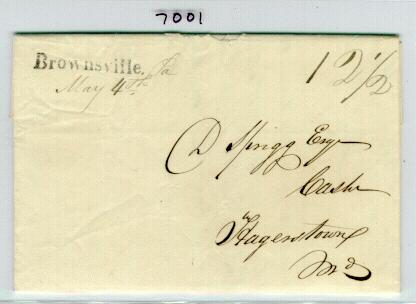 7001
Brownsville. Pa
May 4th
12 1/2
D Sprigg Esqr
Cashr
Hagerstown
Md